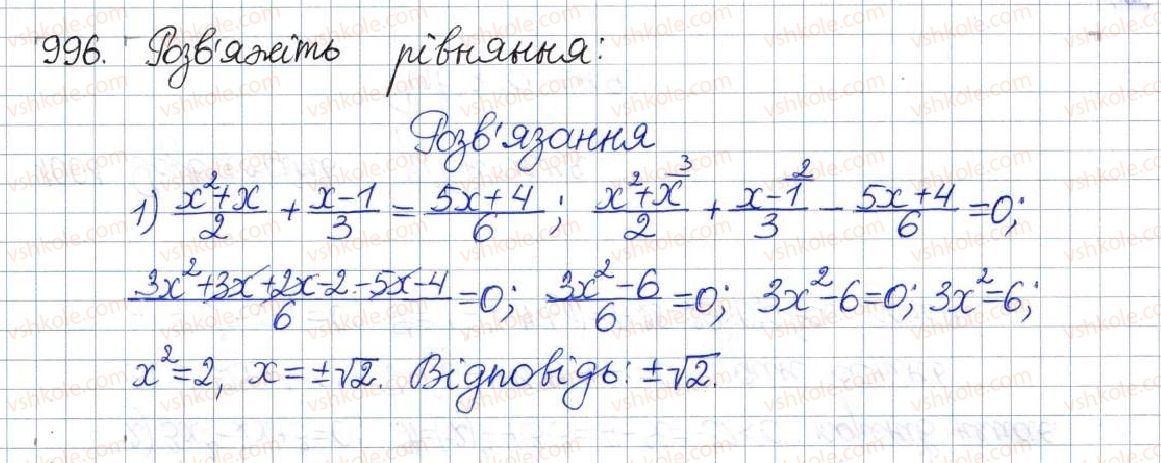 996. Розв'яжіть рівняння:
Розв'язання
1) (x²+x)/2 + (x-1)/3 = (5x+4)/6; (x²+x)/2 ³ + (x-1)/3 ² - (5x+4)/6 = 0;
(3x²+3x+2x-2-5x-4)/6 = 0; (3x²-6)/6 = 0; 3x²-6=0; 3x²=6;
x²=2, x=±√2. Відповідь: ±√2.